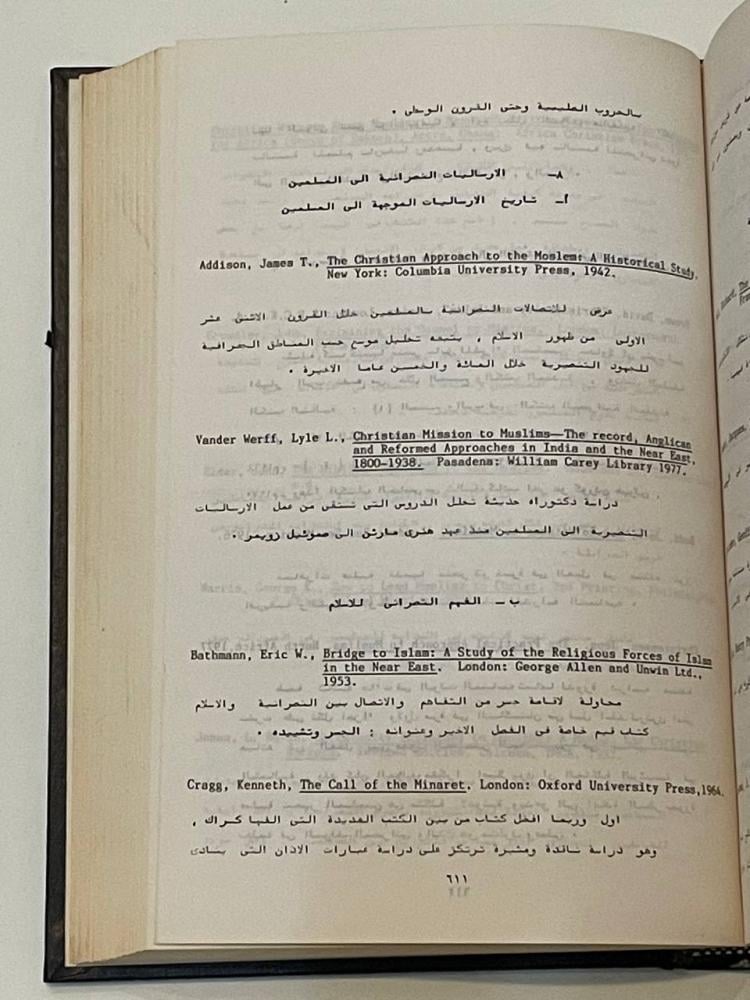 بالحروب الصليبية وحتى القرون الوسطى .
٨ـ الارساليات النصرانية الى المسلمين
أـ تاريخ الارساليات الموجهة الى المسلمين
Addison, James T., The Christian Approach to the Moslem: A Historical Study.
New York: Columbia University Press, 1942.
عرض للاتصالات النصرانية بالمسلمين خلال القرون الاثنى عشر
الاولى من ظهور الاسلام ، يتبعه تحليل موسع حسب المناطق الجغرافية
للجهود التنصيرية خلال المائة والخمسن عاما الاخيرة .
Vander Werff, Lyle L., Christian Mission to Muslims—The record, Anglican
and Reformed Approaches in India and the Near East,
1800-1938. Pasadena: William Carey Library 1977.
دراسة دكتوراه حديثة تحلل الدروس التى تستقى من عمل الارساليات
التنصيرية الى المسلمين منذ عهد هنرى مارتن الى صموئيل زويمر .
ب ـ الفهم النصرانى للاسلام
Bathmann, Eric W., Bridge to Islam: A Study of the Religious Forces of Islam
in the Near East. London: George Allen and Unwin Ltd.,
1953.
محاولة لاقامة جسر من التفاهم والاتصال بين النصرانية والاسلام
كتاب قيم خاصة فى الفصل الاخير وعنوانه : الجسر وتشييده .
Cragg, Kenneth, The Call of the Minaret. London: Oxford University Press,1964.
اول وربما افضل كتاب من بين الكتب العديدة التى الفها كراك ،
وهو دراسة ناقدة ومثيرة ترتكز على دراسة عبارات الاذان التى ينادى
٦١١